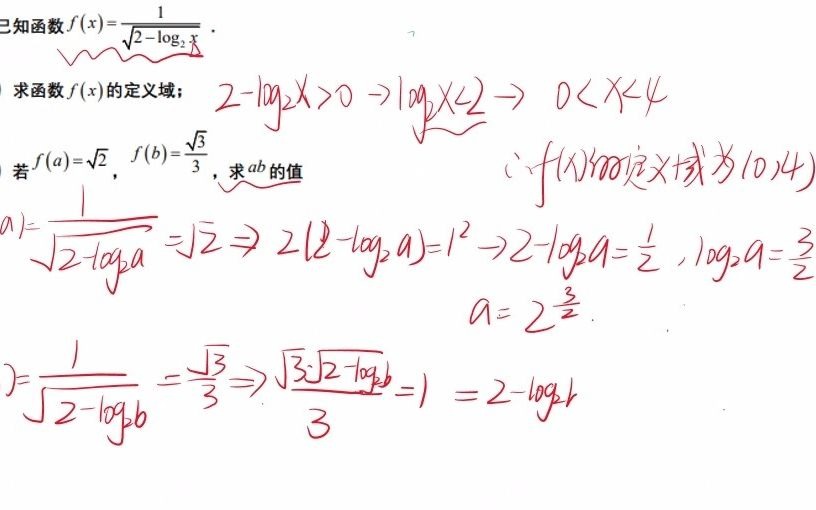 已知函数 f(x)=1/√(2-log₂x) .
求函数 f(x) 的定义域； 2-log₂x>0 → log₂x<2 → 0<x<4
∴f(x)的定义域为(0,4)
若 f(a)=√2 ， f(b)=√3/3 ，求 ab 的值
a)=1/√(2-log₂a) =√2 ⇒ 2(2-log₂a)=1² → 2-log₂a=1/2 , log₂a=3/2
a=2^(3/2) .
)=1/√(2-log₂b) =√3/3 ⇒ √3·√(2-log₂b)/3 =1 =2-log₂b